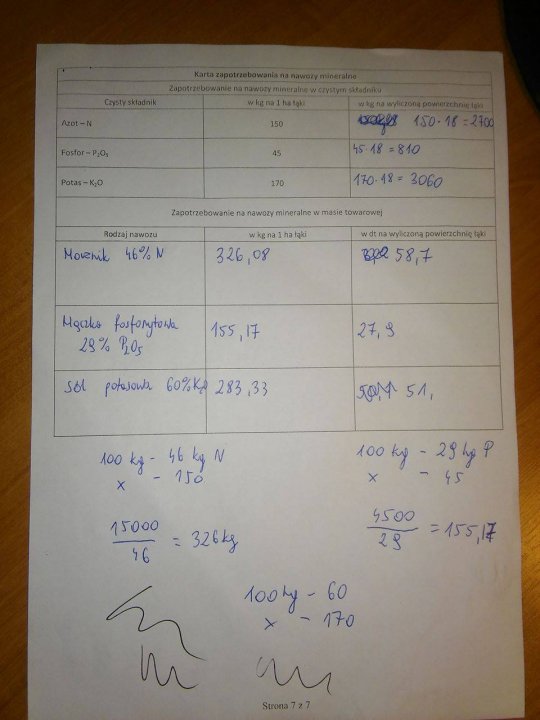 Karta zapotrzebowania na nawozy mineralne
Zapotrzebowanie na nawozy mineralne w czystym składniku
Czysty składnik w kg na 1 ha łąki w kg na wyliczoną powierzchnię łąki
Azot – N 150 150·18=2700
Fosfor – P₂O₅ 45 45·18=810
Potas – K₂O 170 170·18= 3060
Zapotrzebowanie na nawozy mineralne w masie towarowej
Rodzaj nawozu w kg na 1 ha łąki w dt na wyliczoną powierzchnię łąki
Mocznik 46% N 326,08 58,7
Mączka fosforytowa 155,17 27,9
29% P₂O₅
Sól potasowa 60% K₂O 283,33 51,
100 kg – 46 kg N 100 kg – 29 kg P
x – 150 x – 45
15000 4500
= 326kg = 155,17
46 29
100 kg – 60
x – 170
Strona 7 z 7